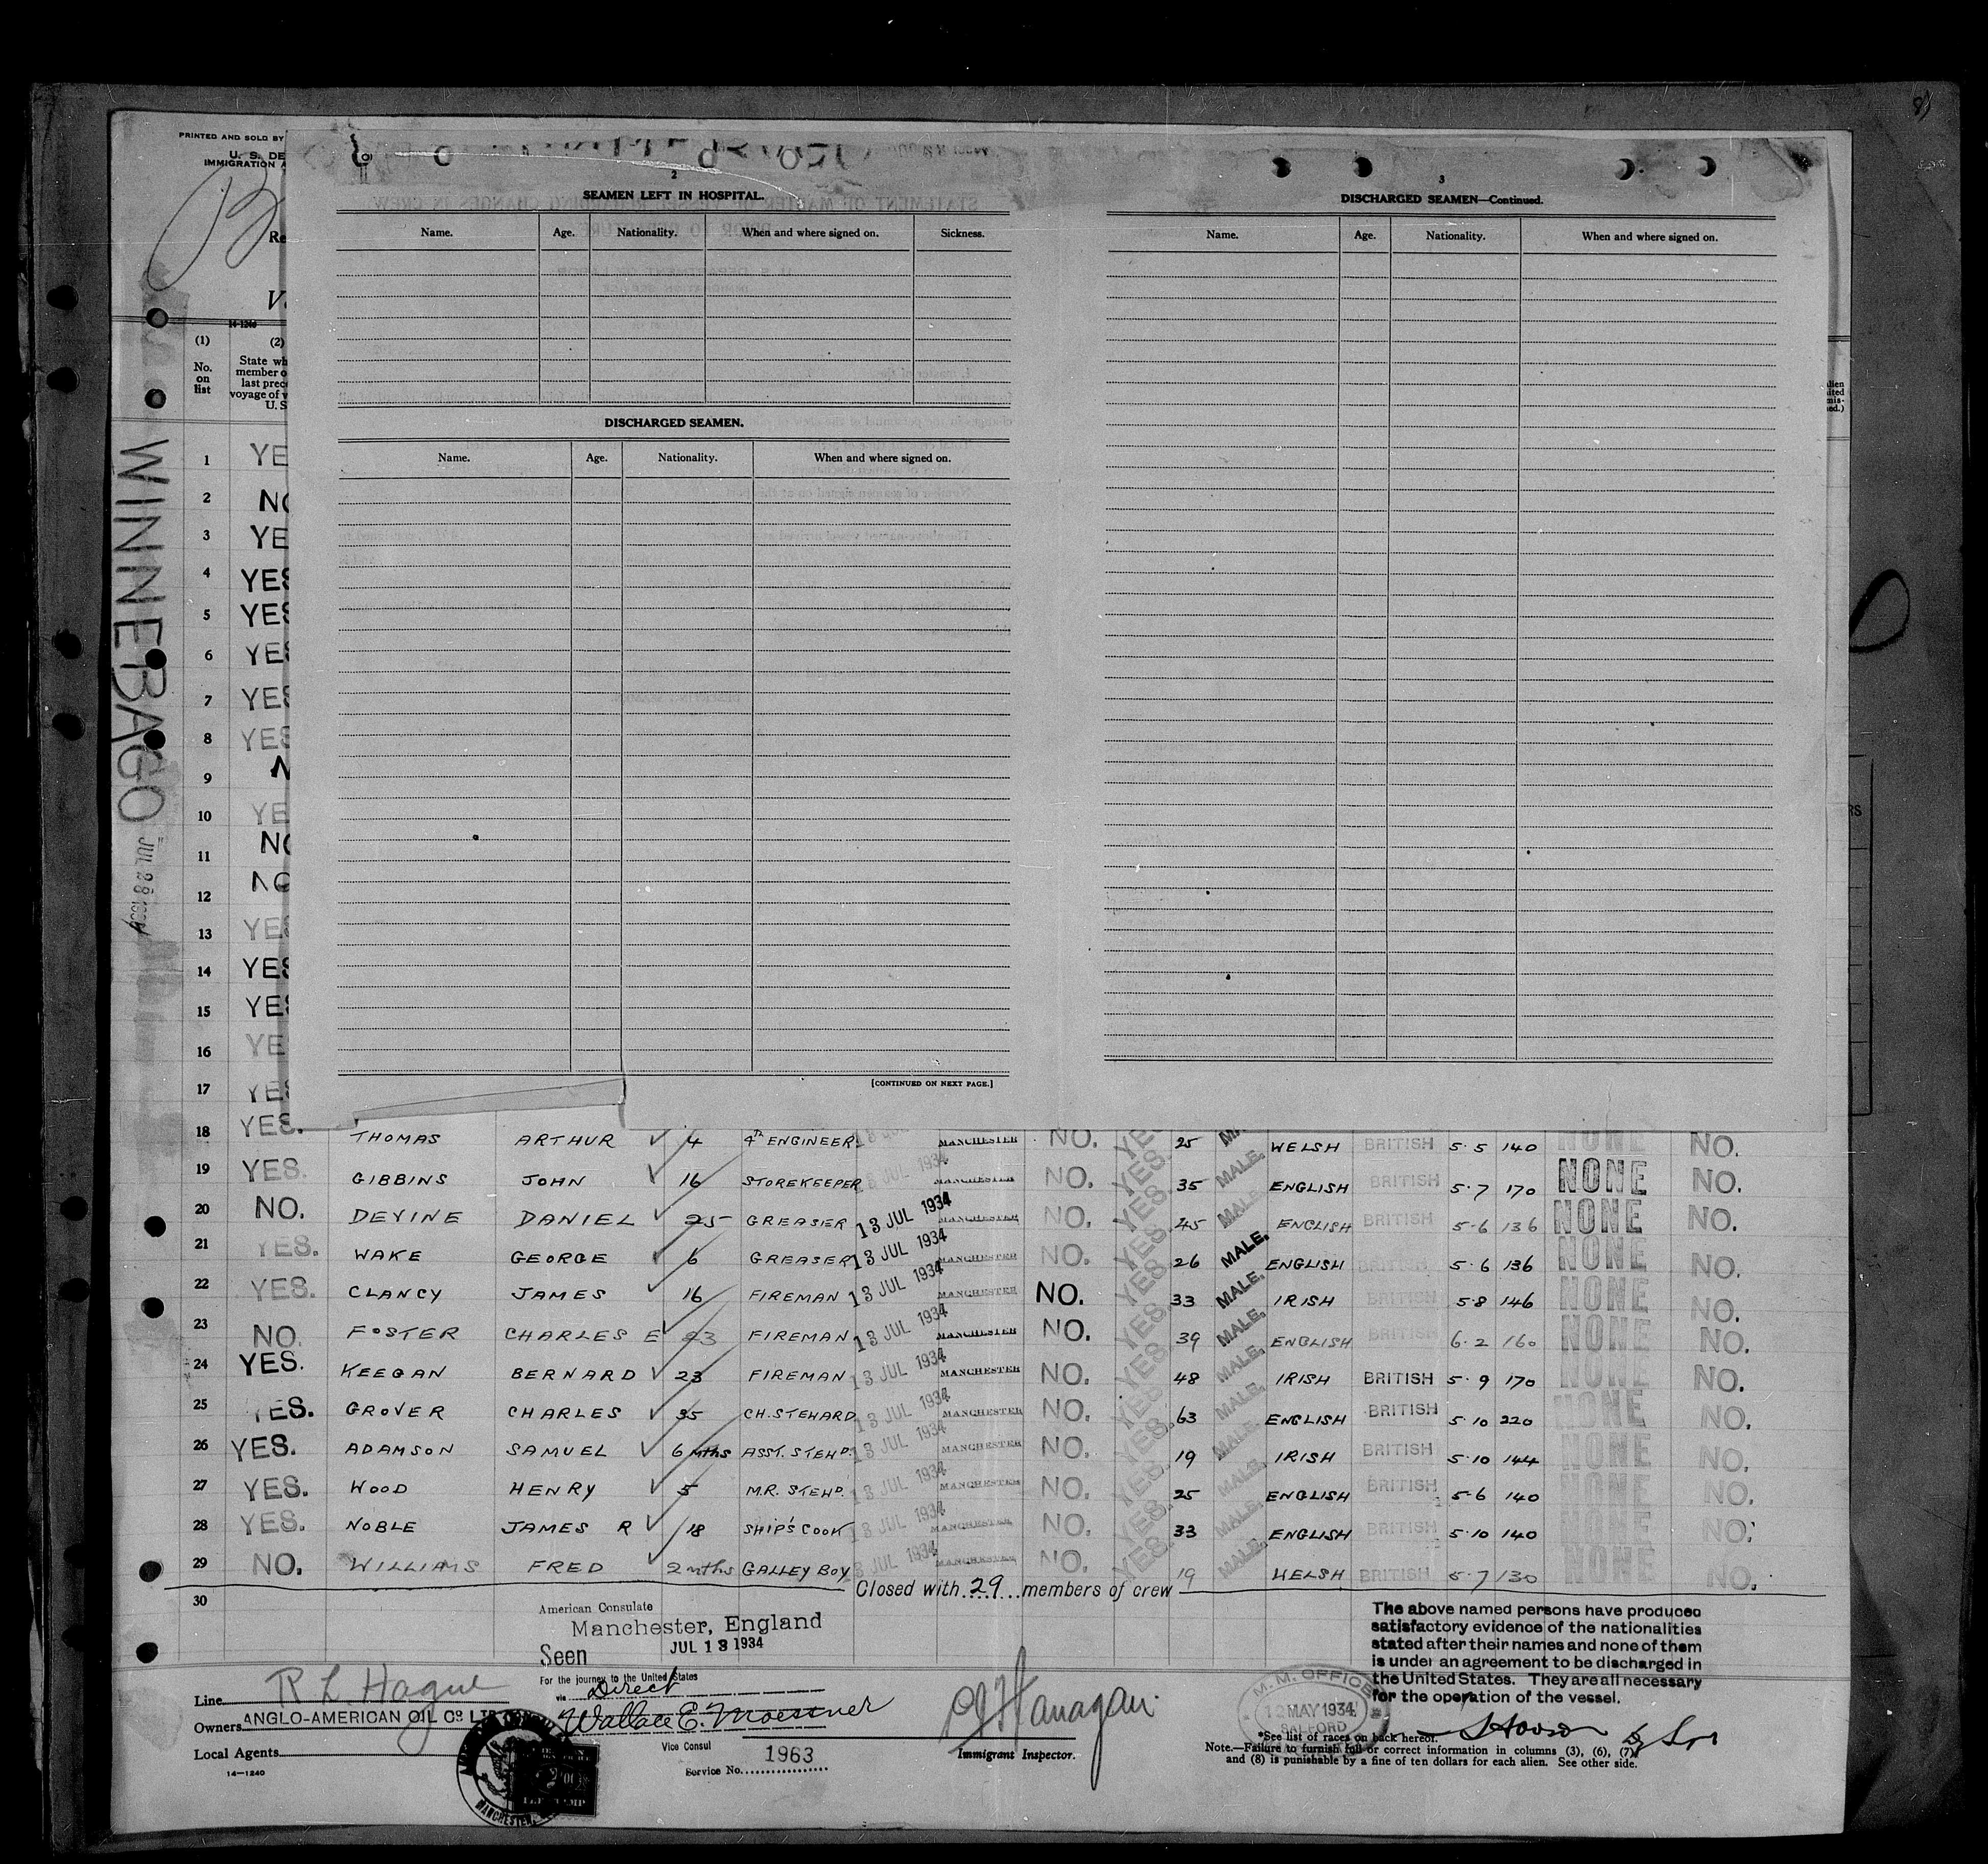 PRINTED AND SOLD BY
U. S. DE
IMMIGRATION A
Re
14-1240
(1) (2)
No. on list
State wh
member o
last prec
voyage of v
U. S
WINNEBAGO
JUL 28 1934
2
SEAMEN LEFT IN HOSPITAL.
Name. Age. Nationality. When and where signed on. Sickness.
DISCHARGED SEAMEN.
Name. Age. Nationality. When and where signed on.
[CONTINUED ON NEXT PAGE.]
3
DISCHARGED SEAMEN—Continued.
Name. Age. Nationality. When and where signed on.
1 YE
2 NO
3 YE
4 YES
5 YES
6 YES
7 YES
8 YES
9 N
10 YE
11 NO
12 NO
13 YES
14 YES
15 YES
16 YE
17 YES
18 YES. THOMAS ARTHUR 4 4TH ENGINEER MANCHESTER NO. YES 25 WELSH BRITISH 5·5 140 NONE NO.
19 YES. GIBBINS JOHN 16 STOREKEEPER 1934 MANCHESTER NO. YES. 35 MALE. ENGLISH BRITISH 5·7 170 NONE NO.
20 NO. DEVINE DANIEL 25 GREASER 13 JUL 1934 MANCHESTER NO. YES. 45 MALE. ENGLISH BRITISH 5·6 136 NONE NO.
21 YES. WAKE GEORGE 6 GREASER 13 JUL 1934 MANCHESTER NO. YES. 26 MALE. ENGLISH BRITISH 5·6 136 NONE NO.
22 YES. CLANCY JAMES 16 FIREMAN 13 JUL 1934 MANCHESTER NO. YES. 33 MALE. IRISH BRITISH 5·8 146 NONE NO.
23 NO. FOSTER CHARLES E 23 FIREMAN 13 JUL 1934 MANCHESTER NO. YES. 39 MALE. ENGLISH BRITISH 6·2 160 NONE NO.
24 YES. KEEGAN BERNARD 23 FIREMAN 13 JUL 1934 MANCHESTER NO. YES. 48 MALE. IRISH BRITISH 5·9 170 NONE NO.
25 YES. GROVER CHARLES 35 CH. STEWARD 13 JUL 1934 MANCHESTER NO. YES. 63 MALE. ENGLISH BRITISH 5·10 220 NONE NO.
26 YES. ADAMSON SAMUEL 6 mths ASST. STEWD. 13 JUL 1934 MANCHESTER NO. YES. 19 MALE. IRISH BRITISH 5·10 144 NONE NO.
27 YES. WOOD HENRY 5 M.R. STEWD. 13 JUL 1934 MANCHESTER NO. YES. 25 MALE. ENGLISH BRITISH 5·6 140 NONE NO.
28 YES. NOBLE JAMES R 18 SHIP'S COOK 13 JUL 1934 MANCHESTER NO. YES. 33 MALE. ENGLISH BRITISH 5·10 140 NONE NO.
29 NO. WILLIAMS FRED 2 mths GALLEY BOY 13 JUL 1934 MANCHESTER NO. YES. 19 MALE. WELSH BRITISH 5·7 130 NONE NO.
Closed with 29 members of crew
30
American Consulate
Manchester, England
Seen JUL 13 1934
For the journey to the United States
via Direct
Wallace E. Moessner
Vice Consul
Service No. 1963
Line R L Hague
Owners ANGLO-AMERICAN OIL CO LTD
Local Agents
14—1240
Immigrant Inspector.
M. M. OFFICE
12 MAY 1934
SALFORD
The above named persons have produced
satisfactory evidence of the nationalities
stated after their names and none of them
is under an agreement to be discharged in
the United States. They are all necessary
for the operation of the vessel.
*See list of races on back hereof.
Note.—Failure to furnish full or correct information in columns (3), (6), (7)
and (8) is punishable by a fine of ten dollars for each alien. See other side.